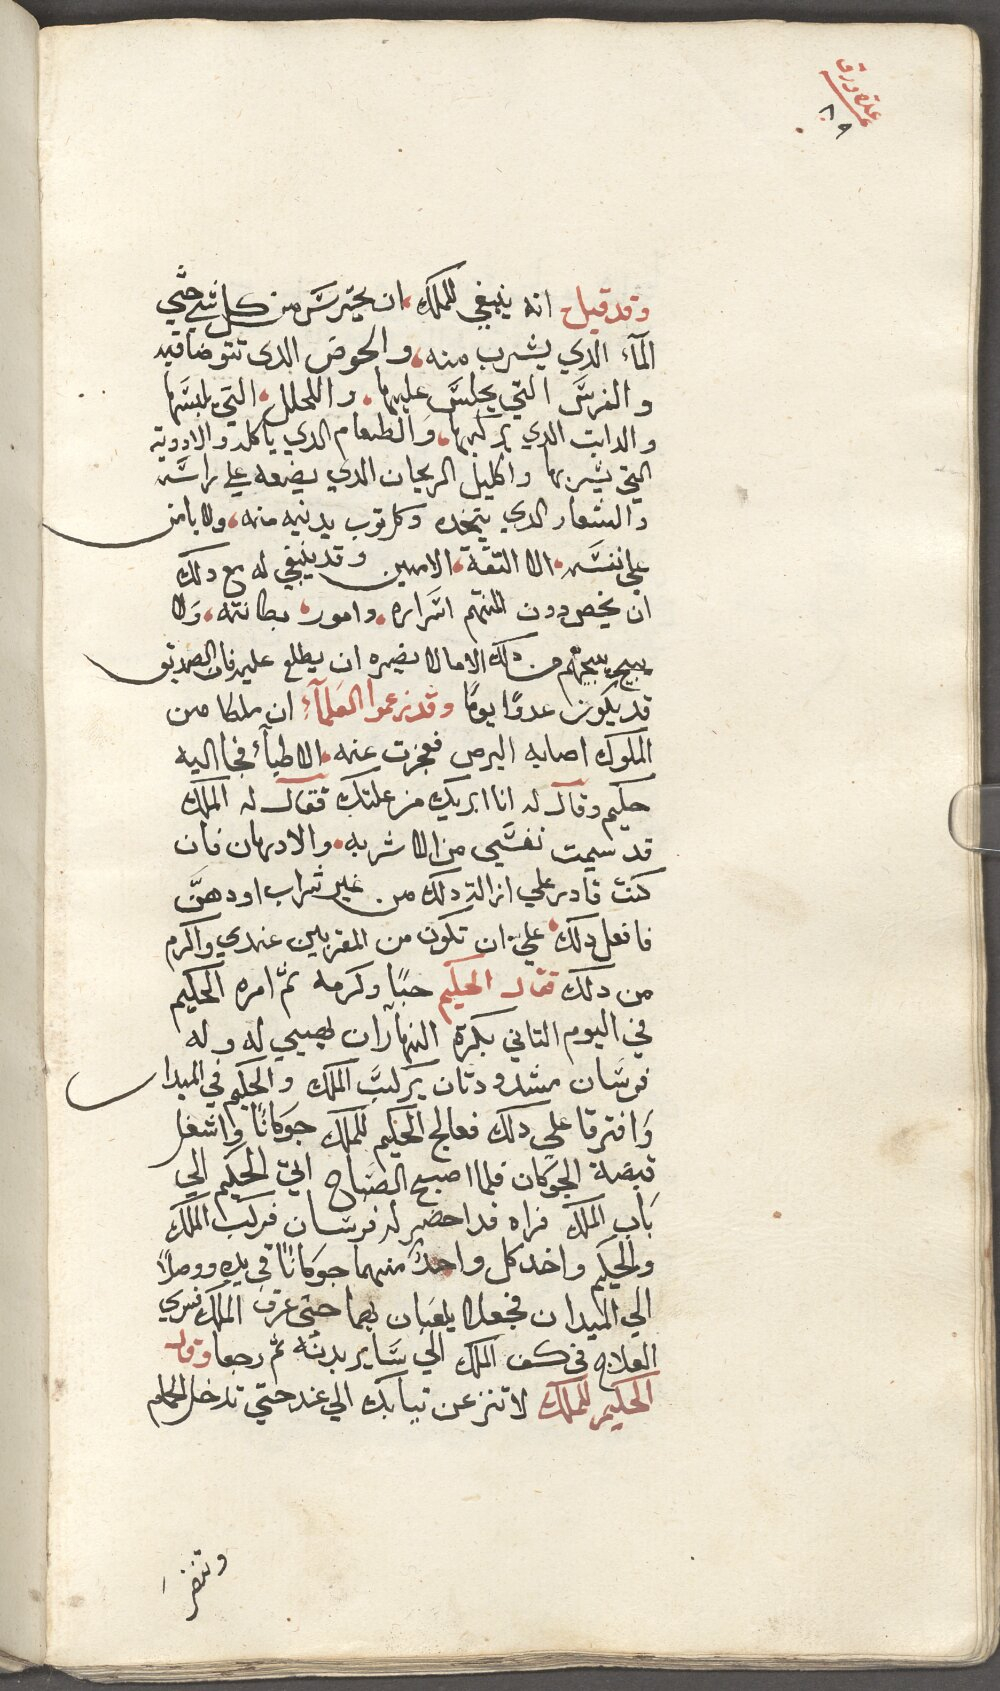 عدة ورق
٨٩
وقد قيل انه ينبغي للملك ان يحترس من كل شي حتي
المآء الدي يشرب منه والحوض الدى تتوضا فيه
والفرش التي يجلس عليها واللحلل التي يلبسها
والدابت الدي يركبها والطعام الدي ياكله والادوية
التي يشربها واكليل الريحان الدي يضعه علي راسه
والشعار الدي يتخده وكل توب يدنيه منه ولا يامن
علي نفسه الا التقة الامين وقد ينبغي له مع دلك
ان يخص دون المتهم اسراره وامور بطانته ولا
يبيح دلك الا ما لا يضره ان يطلع عليه فان الصديق
قد يكون عدوًا يومًا وقد زعموا العلمآء ان ملكا من
الملوك اصابه البرص فعجزت عنه الاطبآء فجا اليه
حكيم وقال له انا ابريك من علتك فقال له الملك
قد سيمت نفسي من الاشربه والادهان فان
كنت قادر علي ازالة دلك من غير شراب او دهن
فافعل دلك علي ان تكون من المقربين عندي واكرم
من دلك فقال الحكيم حبًا وكرمه تم امره الحكيم
في اليوم التاني بكرة النهار ان يهيي له وله
فرسان مشدودتان يركب الملك والحكيم في الميدا
وافترقا علي دلك فعالج الحكيم للملك جوكانًا واشغل
قبضة الجوكان فلما اصبح الصباح اتي الحكيم الي
باب الملك فراه قد احضر له فرسان فركب الملك
والحكيم واخد كل واحد منهما جوكانًا في يده ووصلا
الي الميدان فجعلا يلعبان بهما حتي عرق الملك فسري
العلاج في كف الملك الي ساير بدنه تم رجعا وقال
الحكيم للملك لا تنزعن تيابك الي عند حتي تدخل الحمام